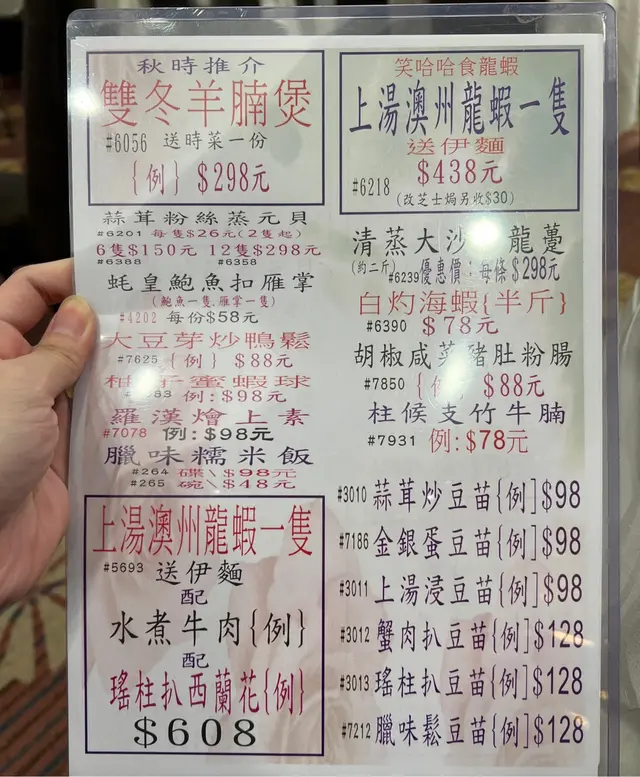 秋時推介
雙冬羊腩煲
#6056 送時菜一份
{例} $298元
蒜茸粉絲蒸元貝
#6201 每隻$26元(2隻起)
6隻$150元 12隻$298元
#6388 #6358
蚝皇鮑魚扣雁掌
(鮑魚一隻.雁掌一隻)
#4202 每份$58元
大豆芽炒鴨鬆
#7625 {例} $88元
柚子蜜蝦球
83 例:$98元
羅漢燴上素
#7078 例:$98元
臘味糯米飯
#264 碟\$98元
#265 碗\$48元
上湯澳州龍蝦一隻
#5693 送伊麵
配
水煮牛肉{例}
配
瑤柱扒西蘭花{例}
$608
笑哈哈食龍蝦
上湯澳州龍蝦一隻
送伊麵
$438元
#6218
(改芝士焗另收$30)
清蒸大沙龍躉
(約二斤) #6239優惠價:每條$298元
白灼海蝦{半斤}
#6390 $78元
胡椒咸菜豬肚粉腸
#7850 {例} $88元
柱候支竹牛腩
#7931 例:$78元
#3010 蒜茸炒豆苗{例]$98
#7186 金銀蛋豆苗{例]$98
#3011 上湯浸豆苗{例]$98
#3012 蟹肉扒豆苗{例]$128
#3013 瑤柱扒豆苗{例]$128
#7212 臘味鬆豆苗{例]$128